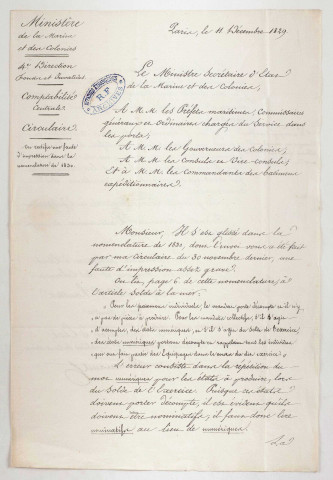 Ministère
de la Marine
et des Colonies
4e Direction
Fonds et Invalides
Comptabilité
Centrale
Circulaire
On rectifie une faute
d'impression dans la
nomenclature de 1830.
Paris, le 11 Décembre 1829.
R.F
ARCHIVES
Le Ministre Secrétaire d'Etat
de la Marine et des Colonies,
A M.M. les Préfets maritimes, Commissaires
généraux et ordinaires chargés du Service dans
les ports,
A M.M. les Gouverneurs des Colonies,
A M.M. les Consuls et Vice-Consuls,
Et à M.M. les Commandants des bâtimens
expéditionnaires.
Monsieur, Il s'est glissé dans la
nomenclature de 1830, dont l'envoi vous a été fait
par ma circulaire du 30 novembre dernier, une
faute d'impression assez grave.
On lit, page 6 de cette nomenclature, à
l'article Solde à la mer:
"Pour les paiemens individuels, le mandat porte décompte et il n'y
a pas de pièce à produire. Pour les mandats collectifs, s'il s'agit
d'acomptes, des états numériques, et s'il s'agit du Solde de l'exercice,
des états numériques portant décompte et rappelant tous les individus
qui ont fait partie des Equipages dans le cours du dit exercice."
L'erreur consiste dans la répétition du
mot numériques pour les états à produire, lors
du Solde de l'Exercice. Puisque ces états
doivent porter décompte, il est évident qu'ils
doivent être nominatifs; il faut donc lire
nominatifs au lieu de numériques.
La